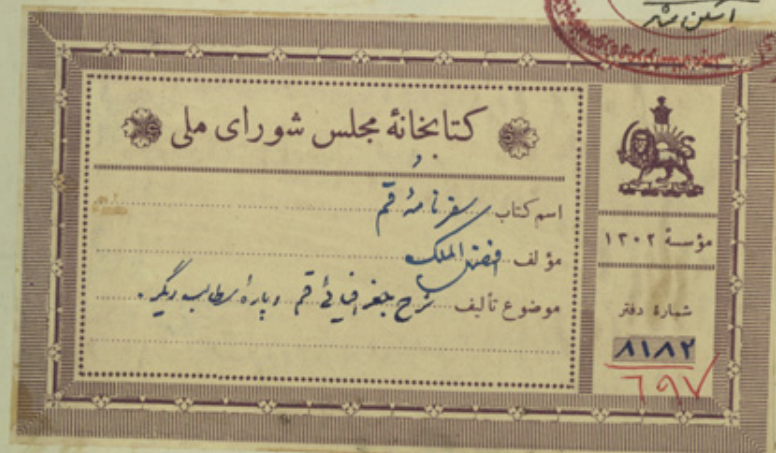 اسکن شد
کتابخانهٔ مجلس شورای ملی
اسم کتاب سفرنامهٔ قم
مؤلف افضل الملک
موضوع تألیف شرح جغرافیائی قم و پارهٔ مطالب دیگر.
مؤسسهٔ ۱۳۰۲
شمارهٔ دفتر
۸۱۸۲
۶۹۷